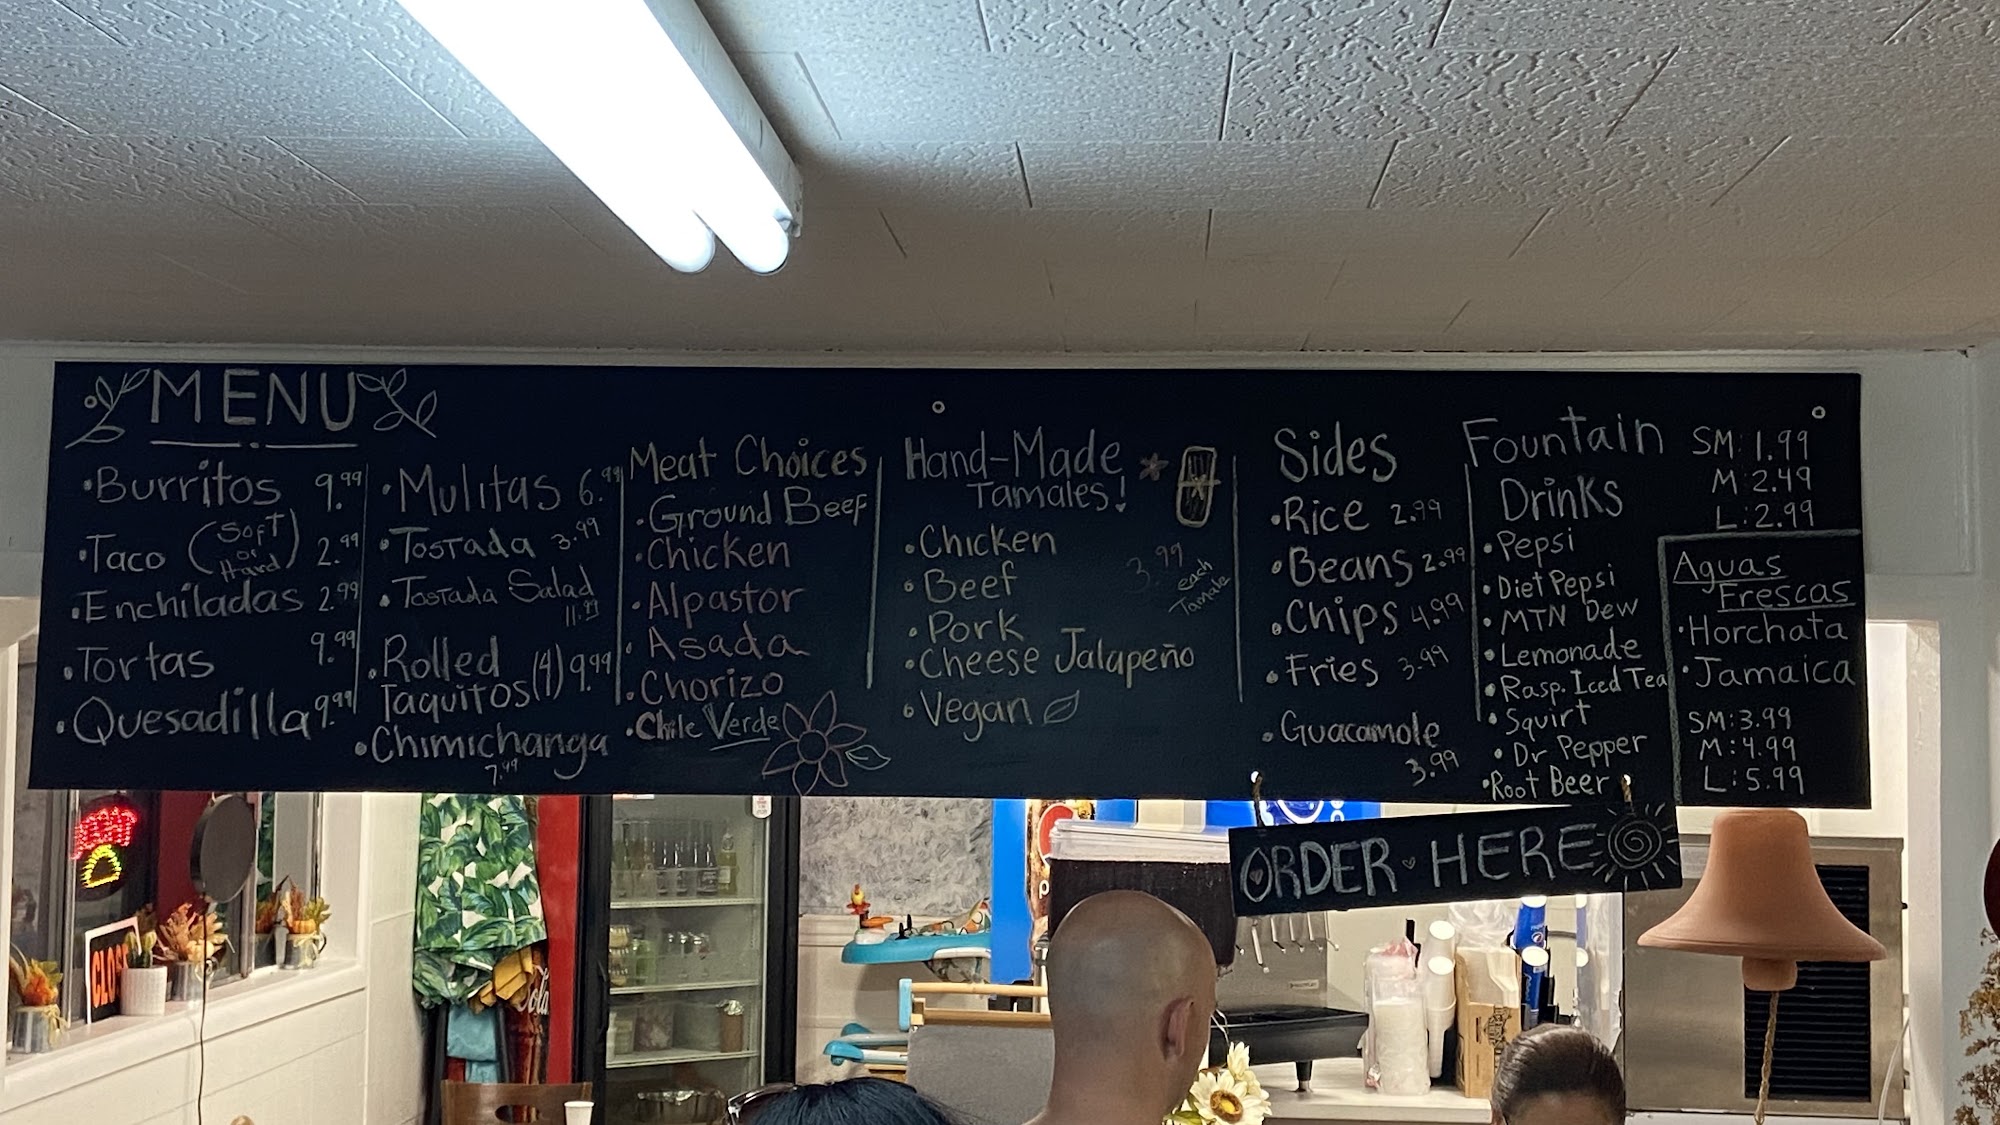 MENU
• Burritos 9.99
• Taco (Soft or Hard) 2.99
• Enchiladas 2.99
• Tortas 9.99
• Quesadilla 9.99
• Mulitas 6.99
• Tostada 3.99
• Tostada Salad
11.99
• Rolled
Taquitos (4) 9.99
• Chimichanga
7.99
Meat Choices
• Ground Beef
• Chicken
• Alpastor
• Asada
• Chorizo
• Chile Verde
Hand-Made
Tamales!
• Chicken
• Beef
• Pork
• Cheese Jalapeño
• Vegan
3.99
each
Tamale
Sides
• Rice 2.99
• Beans 2.99
• Chips 4.99
• Fries 3.99
• Guacamole
3.99
Fountain
Drinks
• Pepsi
• Diet Pepsi
• MTN Dew
• Lemonade
• Rasp. Iced Tea
• Squirt
• Dr Pepper
• Root Beer
SM: 1.99
M: 2.49
L: 2.99
Aguas
Frescas
• Horchata
• Jamaica
SM: 3.99
M: 4.99
L: 5.99
ORDER HERE
CLOS
Cola